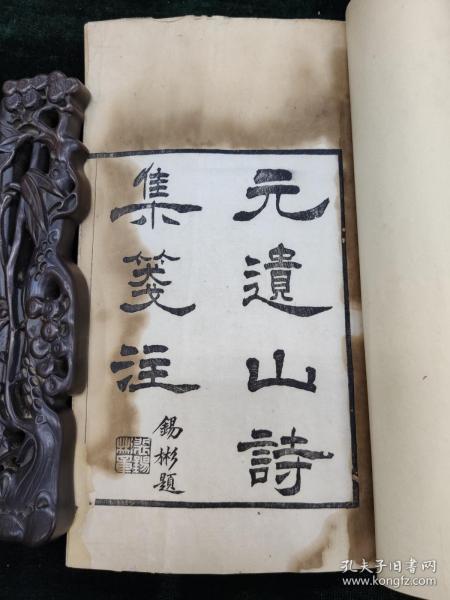 元遺山詩
集箋注
錫彬題
孔夫子旧书网
www.kongfz.com